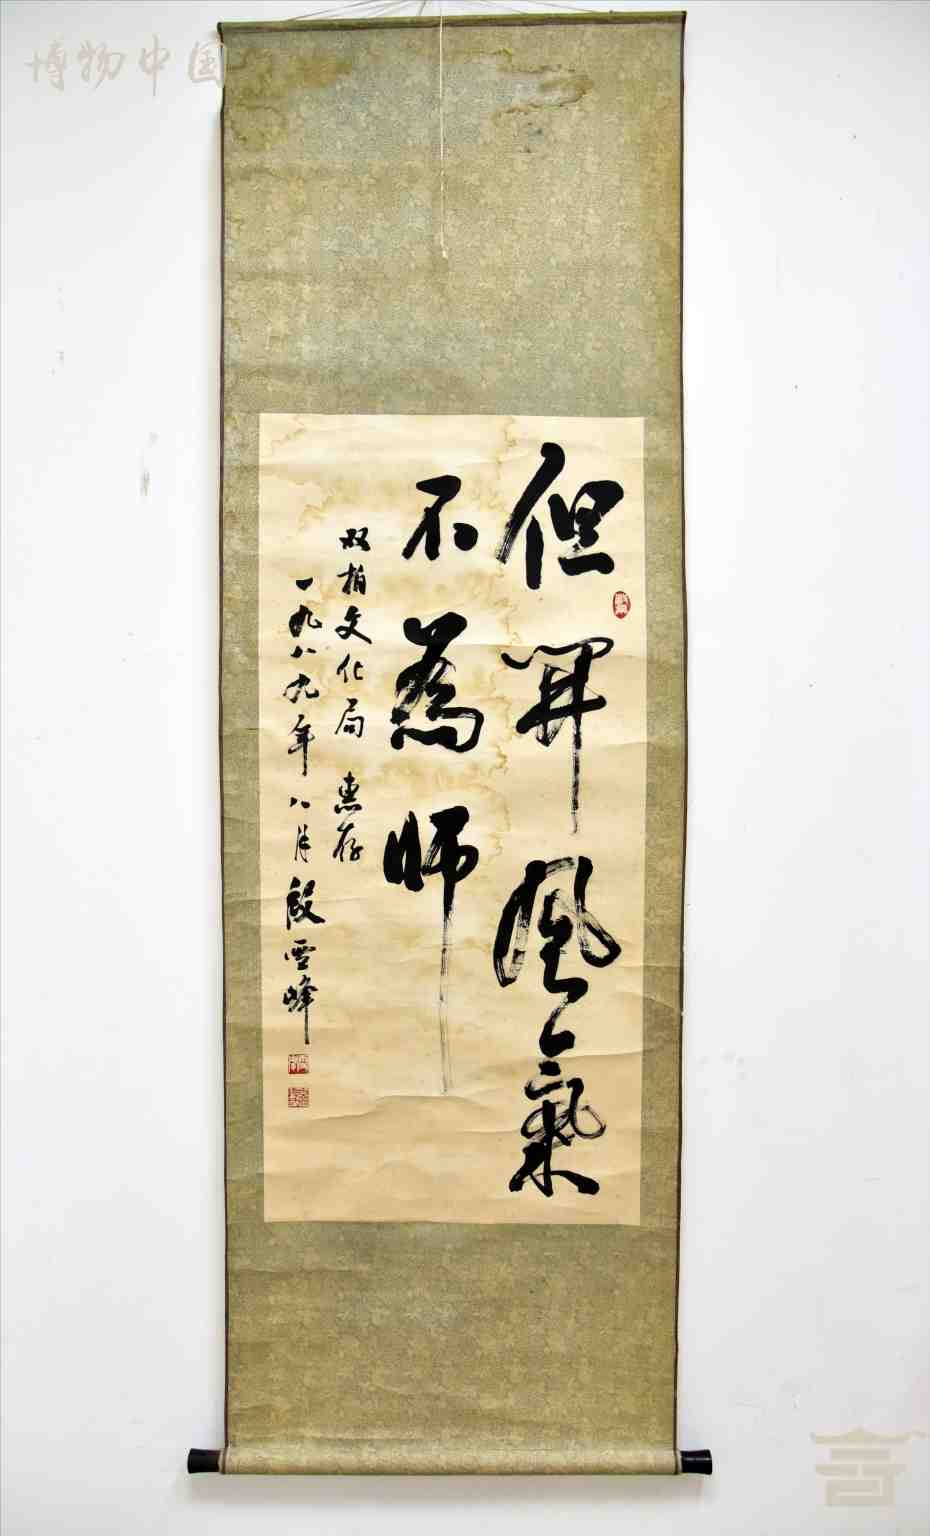 但開風氣
不為師
双柏文化局 惠存
一九八九年八月 段雪峰
博物中国